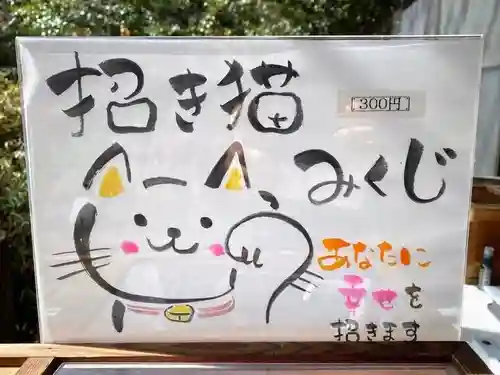 招き猫
[300円]
みくじ
あなたに
幸せを
招きます